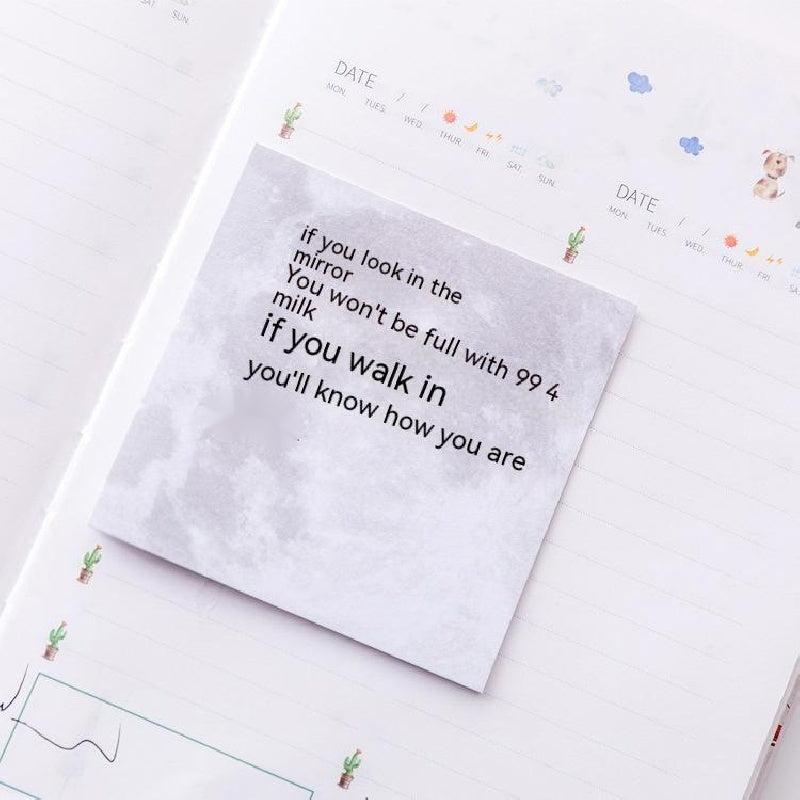 SAT. SUN.
DATE / /
MON. TUES. WED. THUR. FRI. SAT. SUN.
DATE / /
MON. TUES. WED. THUR. FRI.
if you look in the
mirror
You won't be full with 99 4
milk
if you walk in
you'll know how you are